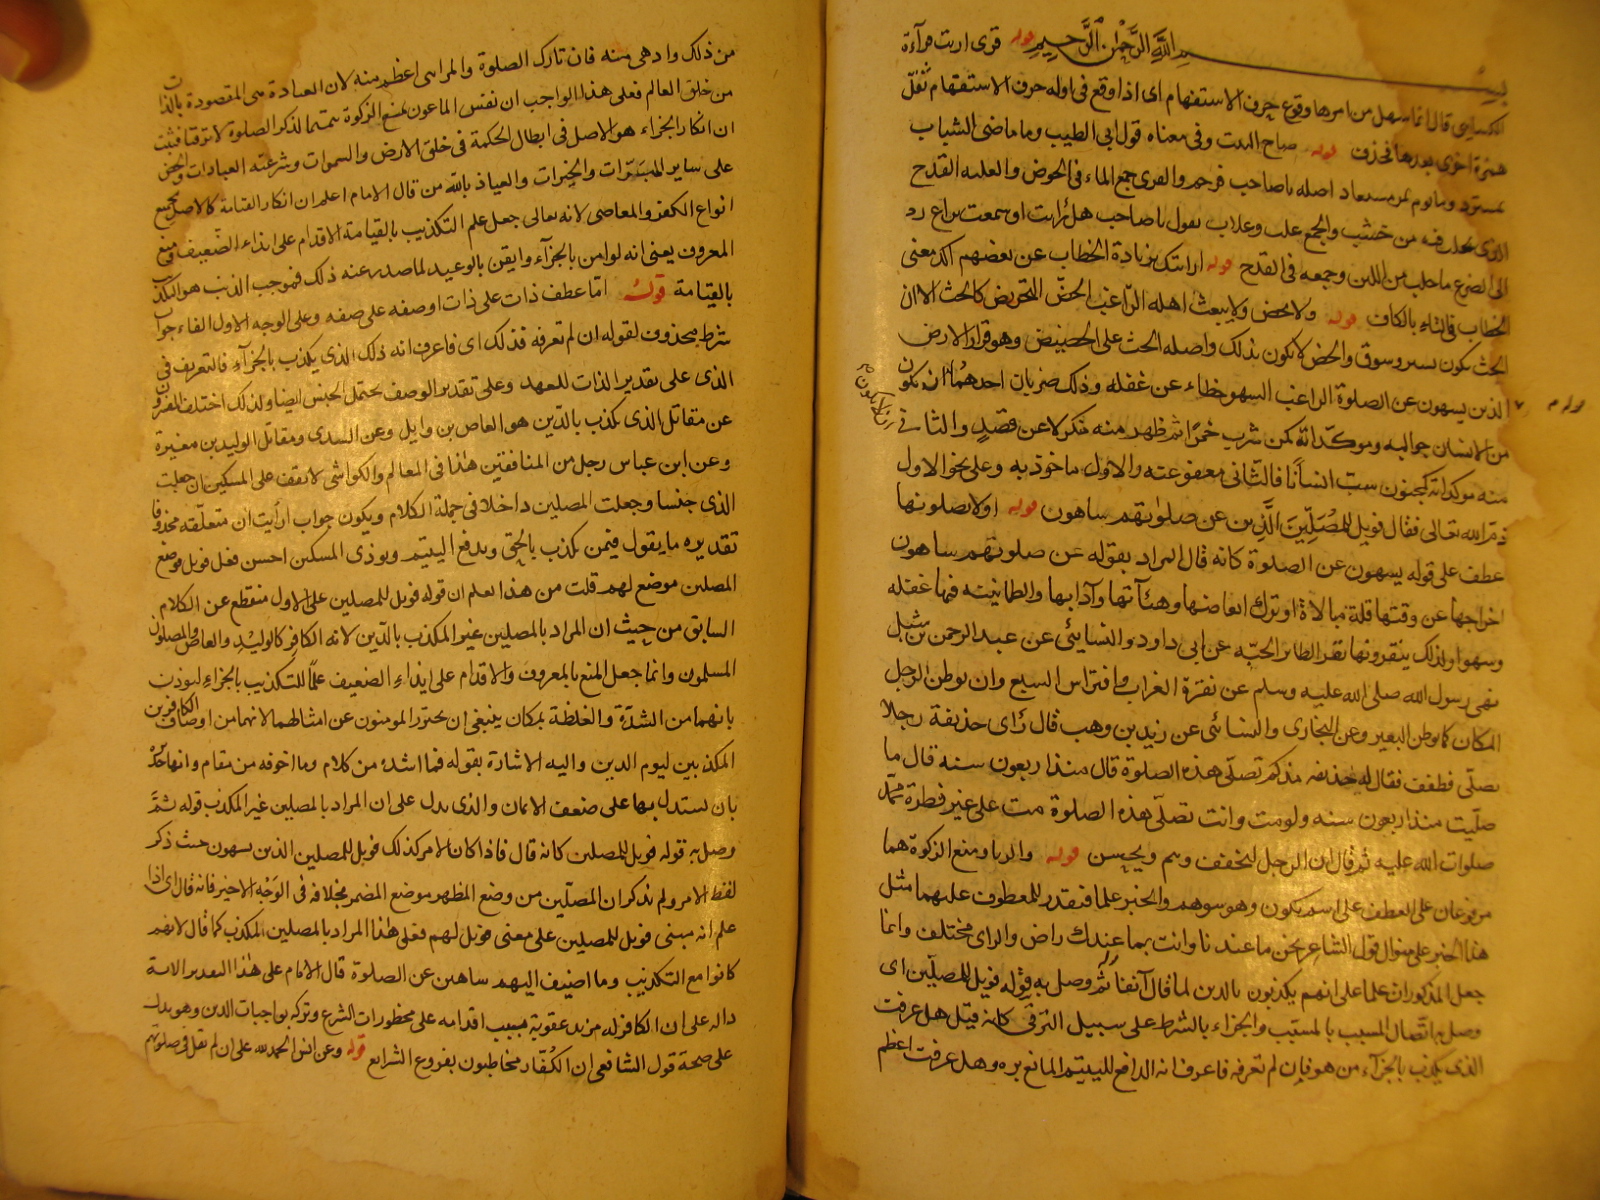 بسم الله الرحمن الرحيم قوله قرئ اريت قراءة
الكسائي قال انما سهل من امرها وقوع حرف الاستفهام اى اذا وقع فى اوله حرف الاستفهام ثقل
همزة اخرى بعدها فى زف قوله صاح وفى معناه قول ابى الطيب وما ماضى الشباب
بمسترد ولا يوم يمر بمستعاد اصله يا صاحب فرخم والقرى جمع الماء فى الحوض والعلبة القدح
الذى يحلب فيه من خشب والجمع علب وعلاب يقول يا صاحب هل رايت او سمعت براع رد
الى الضرع ما حلب من اللبن وجمعه فى القدح قوله ارايتك بزيادة الخطاب عن بعضهم اكد معنى
الخطاب فى التاء بالكاف قوله ولا يحض ولا يبعث اهله الراغب الحض التحريض كالحث الا ان
الحث يكون بسير وسوق والحض لا يكون بذلك واصله الحث على الحضيض وهو قرار الارض
قوله الذين يسهون عن الصلوة الراغب السهو خطاء عن غفلة وذلك ضربان احدهما ان لا يكون
من الانسان جوالبه ومولداته كمن شرب خمرا ثم ظهر منه منكر لا عن قصد والثانى
منه مولداته كمجنون سب انسانا فالثانى معفو عنه والاول ماخوذ به وعلى نحو الاول
ذم الله تعالى فقال فويل للمصلين الذين عن صلوتهم ساهون قوله اولا يصلونها
عطف على قوله يسهون عن الصلوة كانه قال المراد بقوله عن صلوتهم ساهون
اخراجها عن وقتها قلة مبالاة او ترك ابعاضها وهيآتها وآدابها والطمانينة فيها غفلة
وسهوا ولذلك ينقرونها نقر الطائر الحبة عن ابى داود والنسائى عن عبد الرحمن بن شبل
نهى رسول الله صلى الله عليه وسلم عن نقرة الغراب وافتراش السبع وان يوطن الرجل
المكان كما يوطن البعير وعن البخارى والنسائى عن زيد بن وهب قال رأى حذيفة رجلا
يصلى فطفف فقال له حذيفة مذ كم تصلى هذه الصلوة قال منذ اربعون سنة قال ما
صليت منذ اربعون سنة ولو مت وانت تصلى هذه الصلوة مت على غير فطرة محمد
صلوات الله عليه ثم قال ان الرجل ليخفف ويتم ويحسن قوله والريا ومنع الزكوة هما
مرفوعان على العطف على اسم يكون وهو سوهم والخبر علما فيقدر للمعطوف عليهما مثل
هذا الخبر على منوال قول الشاعر نحن بما عندنا وانت بما عندك راض والراى مختلف وانما
جعل المذكورات علما على انهم يكذبون بالدين لما قال آنفا ثم وصل به قوله فويل للمصلين اى
وصل به اتصال المسبب بالمسبب والجزاء بالشرط على سبيل الترقى كانه قيل هل عرفت
الذى يكذب بالجزاء من هو فان لم تعرفه فاعرف انه الدافع لليتيم المانع بره وهل عرفت اعظم
من ذلك وادهى منه فان تارك الصلوة والمرائى اعظم منه لان العبادة هى المقصودة بالذات
من خلق العالم فعلى هذا الواجب ان نفسر الماعون بمنع الزكوة تتميما لذكر الصلوة لا ترقيا فثبت
ان انكار الجزاء هو الاصل فى ابطال الحكمة فى خلق الارض والسموات وشرعته العبادات والحض
على ساير المبرات والخيرات والعياذ بالله من قال الامام اعلم ان انكار القيامة كالاصل لجميع
انواع الكفر والمعاصى لانه تعالى جعل علم التكذيب بالقيامة الاقدام على ايذاء الضعيف ومنع
المعروف يعنى انه لو امن بالجزاء وايقن بالوعيد لما صدر عنه ذلك فموجب الذنب هو التكذيب
بالقيامة قوله اما عطف ذات على ذات او صفة على صفة وعلى الوجه الاول الفاء جواب
شرط محذوف لقوله ان لم تعرفه فذلك اى فاعرف انه ذلك الذى يكذب بالجزاء فالتعريف فى
الذى على تقدير الذات للعهد وعلى تقدير الوصف يحتمل الجنس ايضا ولذلك اختلف المفسرون
عن مقاتل الذى يكذب بالدين هو العاص بن وايل وعن السدى ومقاتل الوليد بن مغيرة
وعن ابن عباس رجل من المنافقين هذا فى المعالم والكواشى لا تقف على المسكين ان جعلت
الذى جنسا وجعلت المصلين داخلا فى جملة الكلام ويكون جواب ارأيت ان متعلقه محذوفا
تقديره ما يقول فيمن كذب بالحق ويدفع اليتيم ويوذى المسكين احسن فعل فويل موضع
المصلين موضع لهم قلت من هذا يعلم ان قوله فويل للمصلين على الاول منقطع عن الكلام
السابق من حيث ان المراد بالمصلين غير المكذب بالدين لانه الكافر كالوليد والعاص والمصلون
المسلمون وانما جعل المنع بالمعروف والاقدام على ايذاء الضعيف علما للتكذيب بالجزاء ليوذن
بانهما من الشدة والغلظة بمكان ينبغى ان يحترز المومنون عن امثالهما لانهما من اوصاف الكافرين
المكذبين ليوم الدين واليه الاشارة بقوله فما اشده من كلام وما اخوفه من مقام وانها جديرة
بان يستدل بها على ضعف الايمان والذى يدل على ان المراد بالمصلين غير المكذب قوله ثم
وصل به قوله فويل للمصلين كانه قال فاذا كان الامر كذلك فويل للمصلين الذين يسهون حيث ذكر
لفظ الامر ولم يذكر ان المصلين من وضع المظهر موضع المضمر بخلافه فى الوجه الاخير فانه قال اى اذا
علم انه مبنى فويل للمصلين على معنى فويل لهم فعلى هذا المراد بالمصلين المكذب كما قال لانهم
كانوا مع التكذيب وما اضيف اليهم ساهين عن الصلوة قال الامام على هذا التقدير الاية
دالة على ان الكافر له مزيد عقوبة بسبب اقدامه على محظورات الشرع وتركه بواجبات الدين وهو يدل
على صحة قول الشافعى ان الكفار مخاطبون بفروع الشرايع قوله وعن انس الحمد لله على ان لم يقل فى صلوتهم